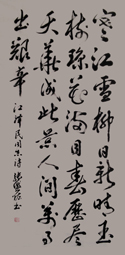 寒江雪柳日新晴玉
樹琼花滿目春歷盡
天華成此景人間萬事
出艱辛 江澤民同志詩 書